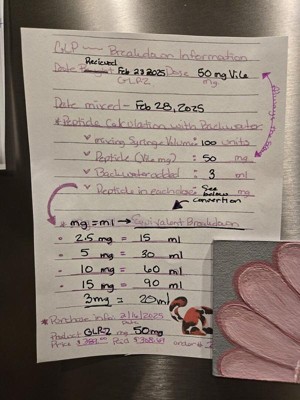 GLP ~~~ Breakdown Information
Recieved
Date Feb 28 2025 Dose 50 mg Vile
GLRZ mg.
Date mixed - Feb 28, 2025
*Peptide Calculation with Backwater
mixing Syringe Volume: 100 units
Peptide (Vile mg) : 50 mg
Backwater added : 3 ml
Peptide in each dose: See below mg
convertion
* mg = ml → Equivalent Breakdown
- 2.5 mg = 15 ml
- 5 mg = 30 ml
- 10 mg = 60 ml
- 15 mg = 90 ml
3mg = 20ml
*Purchase info: 2/16/2025
Date
Product GLRZ mg 50mg
Price $ Paid $ order #